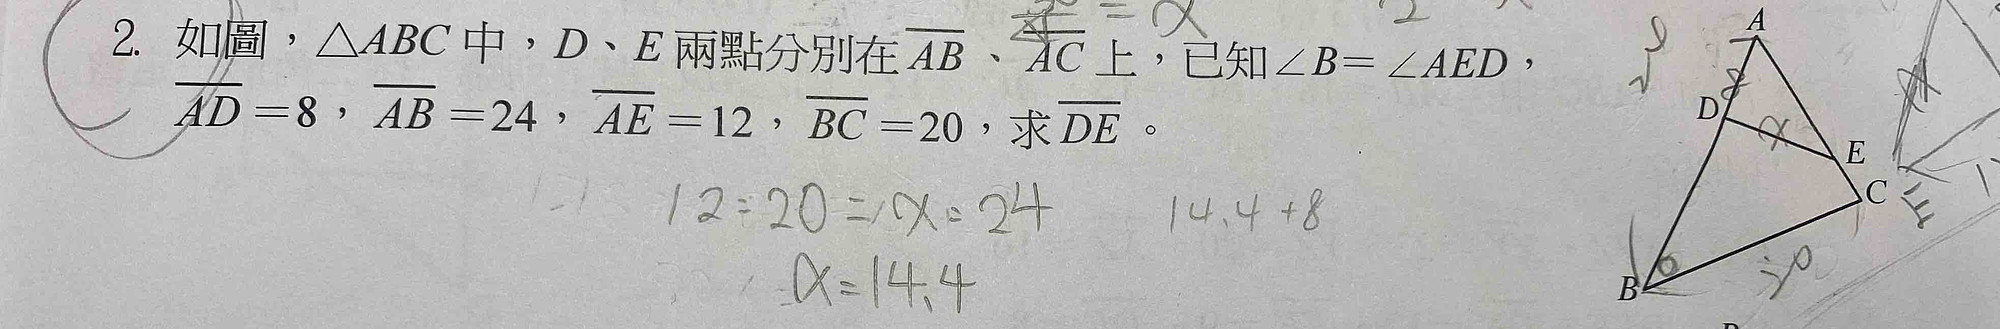 2. 如圖，△ABC 中，D、E 兩點分別在 AB、AC 上，已知∠B=∠AED，
AD=8，AB=24，AE=12，BC=20，求 DE。
12:20=x:24
14.4+8
x=14.4
A
8
D
x
E
C
B
20